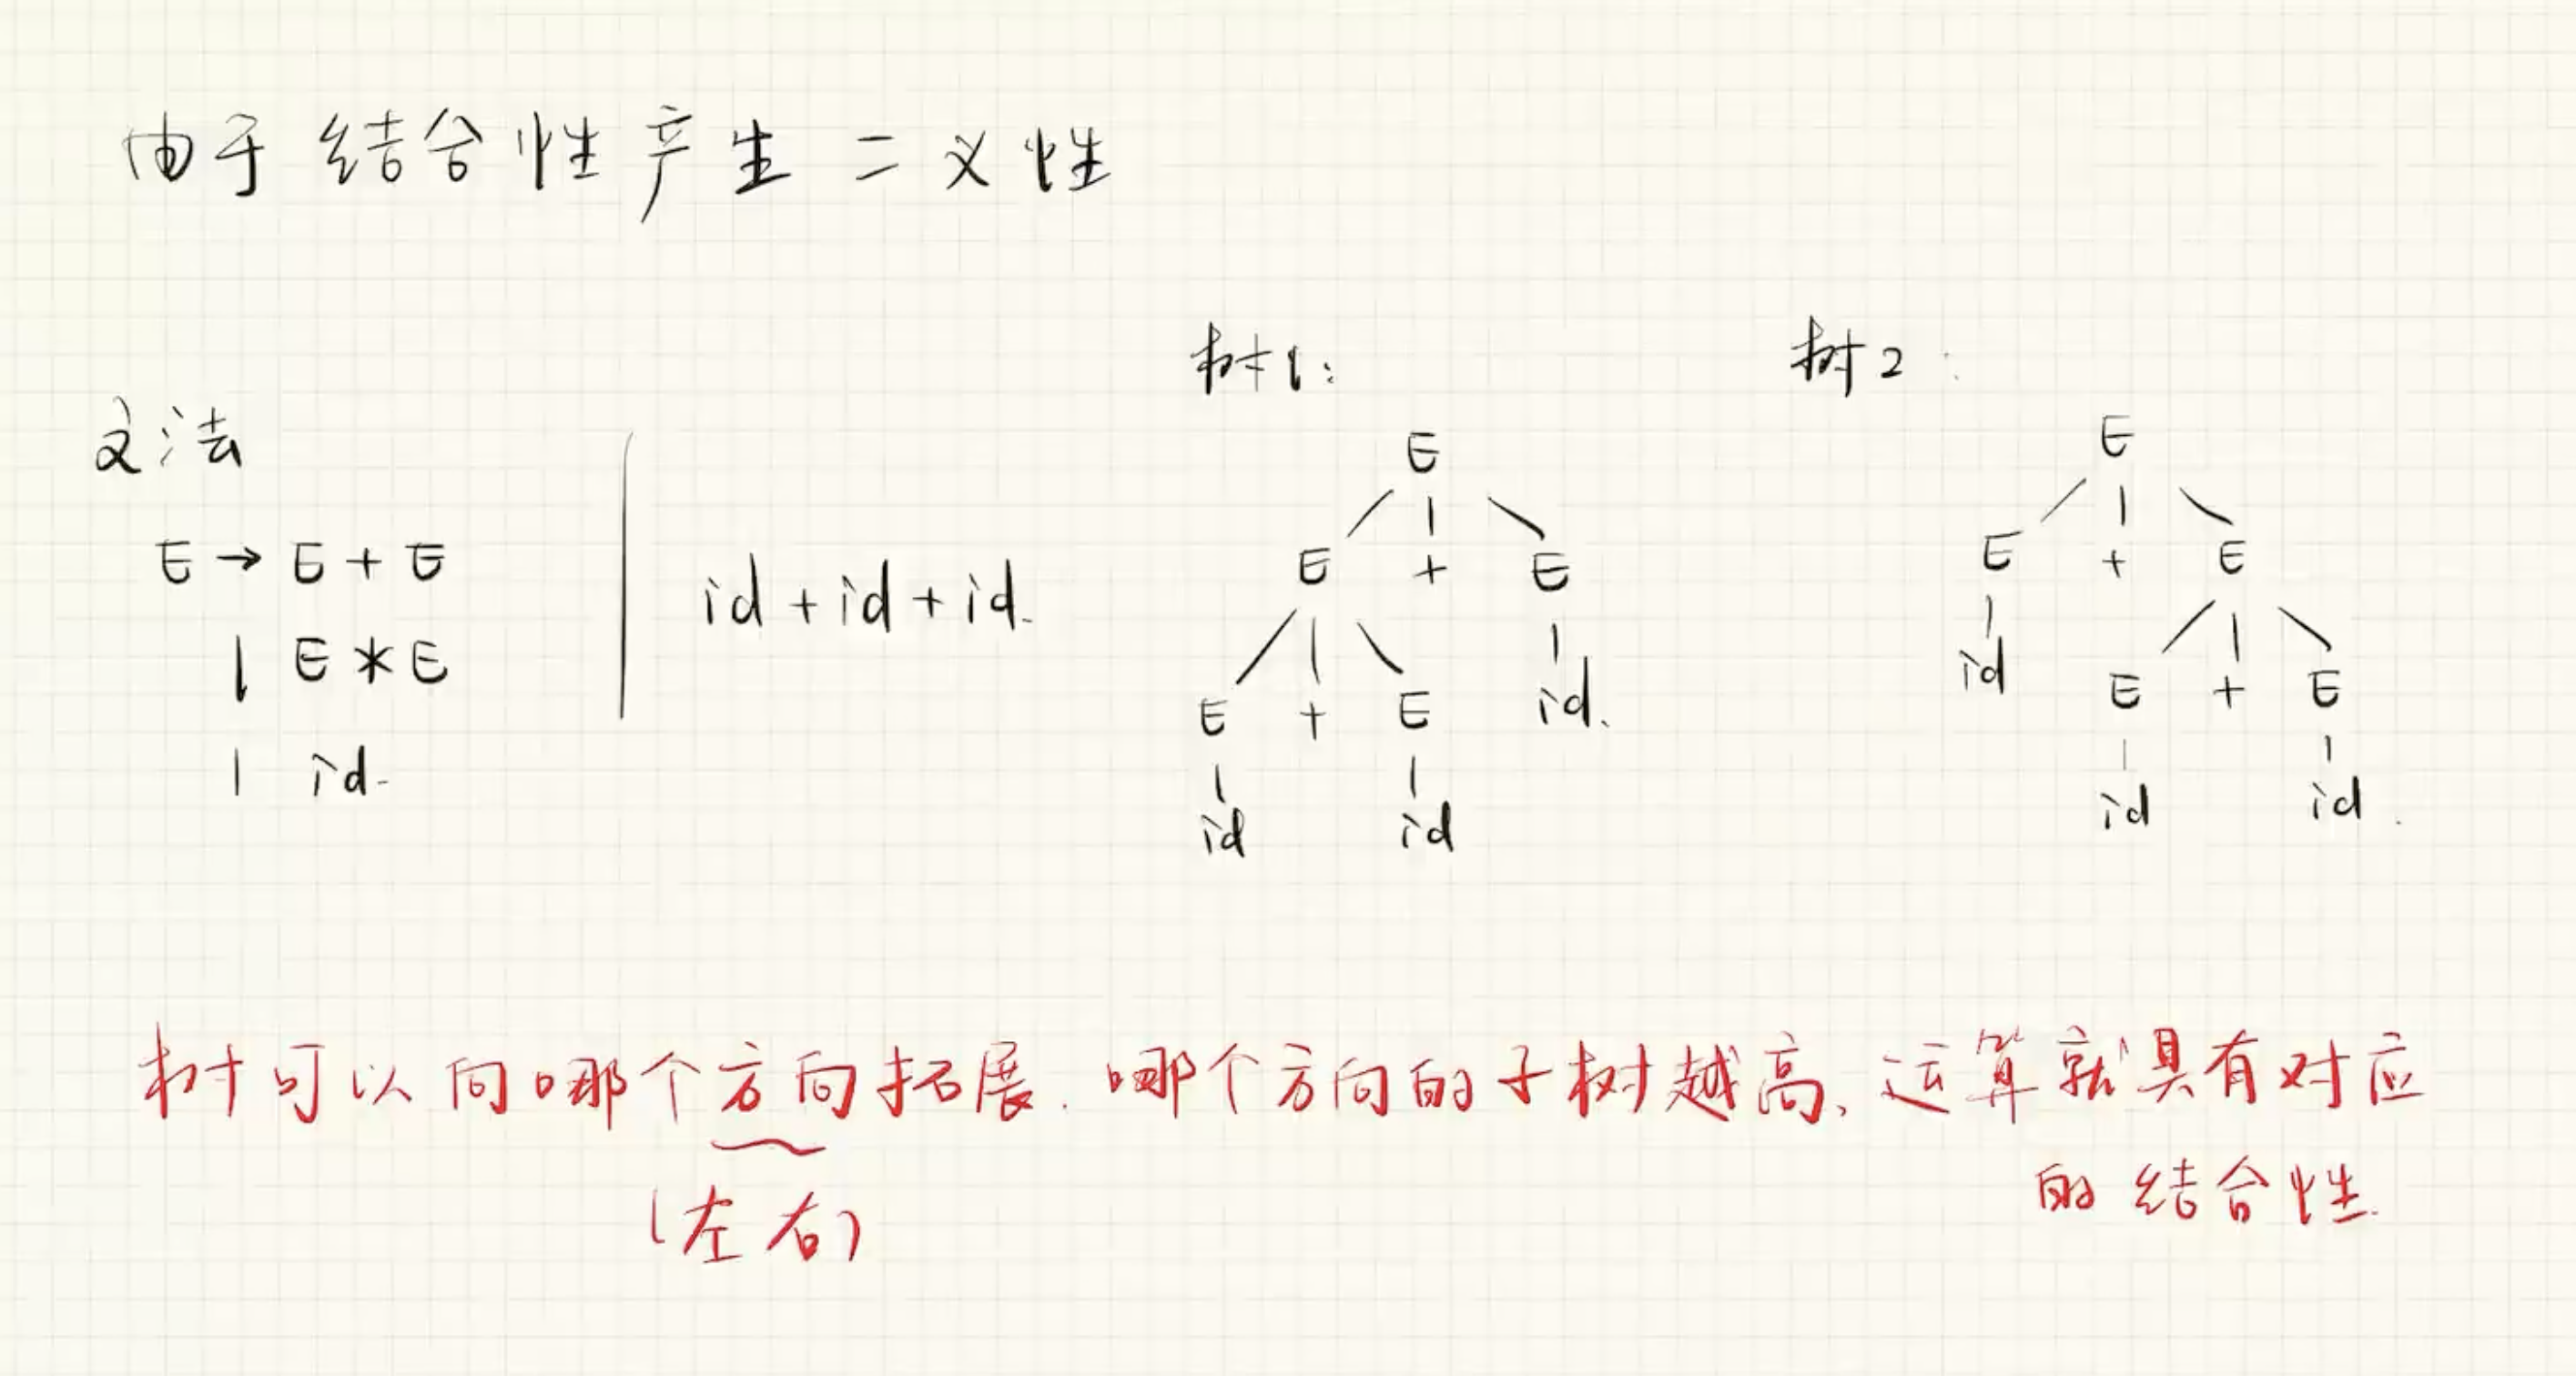 由于结合性产生二义性
树1:
树2:
文法
E → E + E
| E * E
| id
id + id + id
E
E + E
E + E id
id id
E
E + E
id E + E
id id
树可以向哪个方向拓展.哪个方向的子树越高,运算就具有对应
的结合性.
(左右)